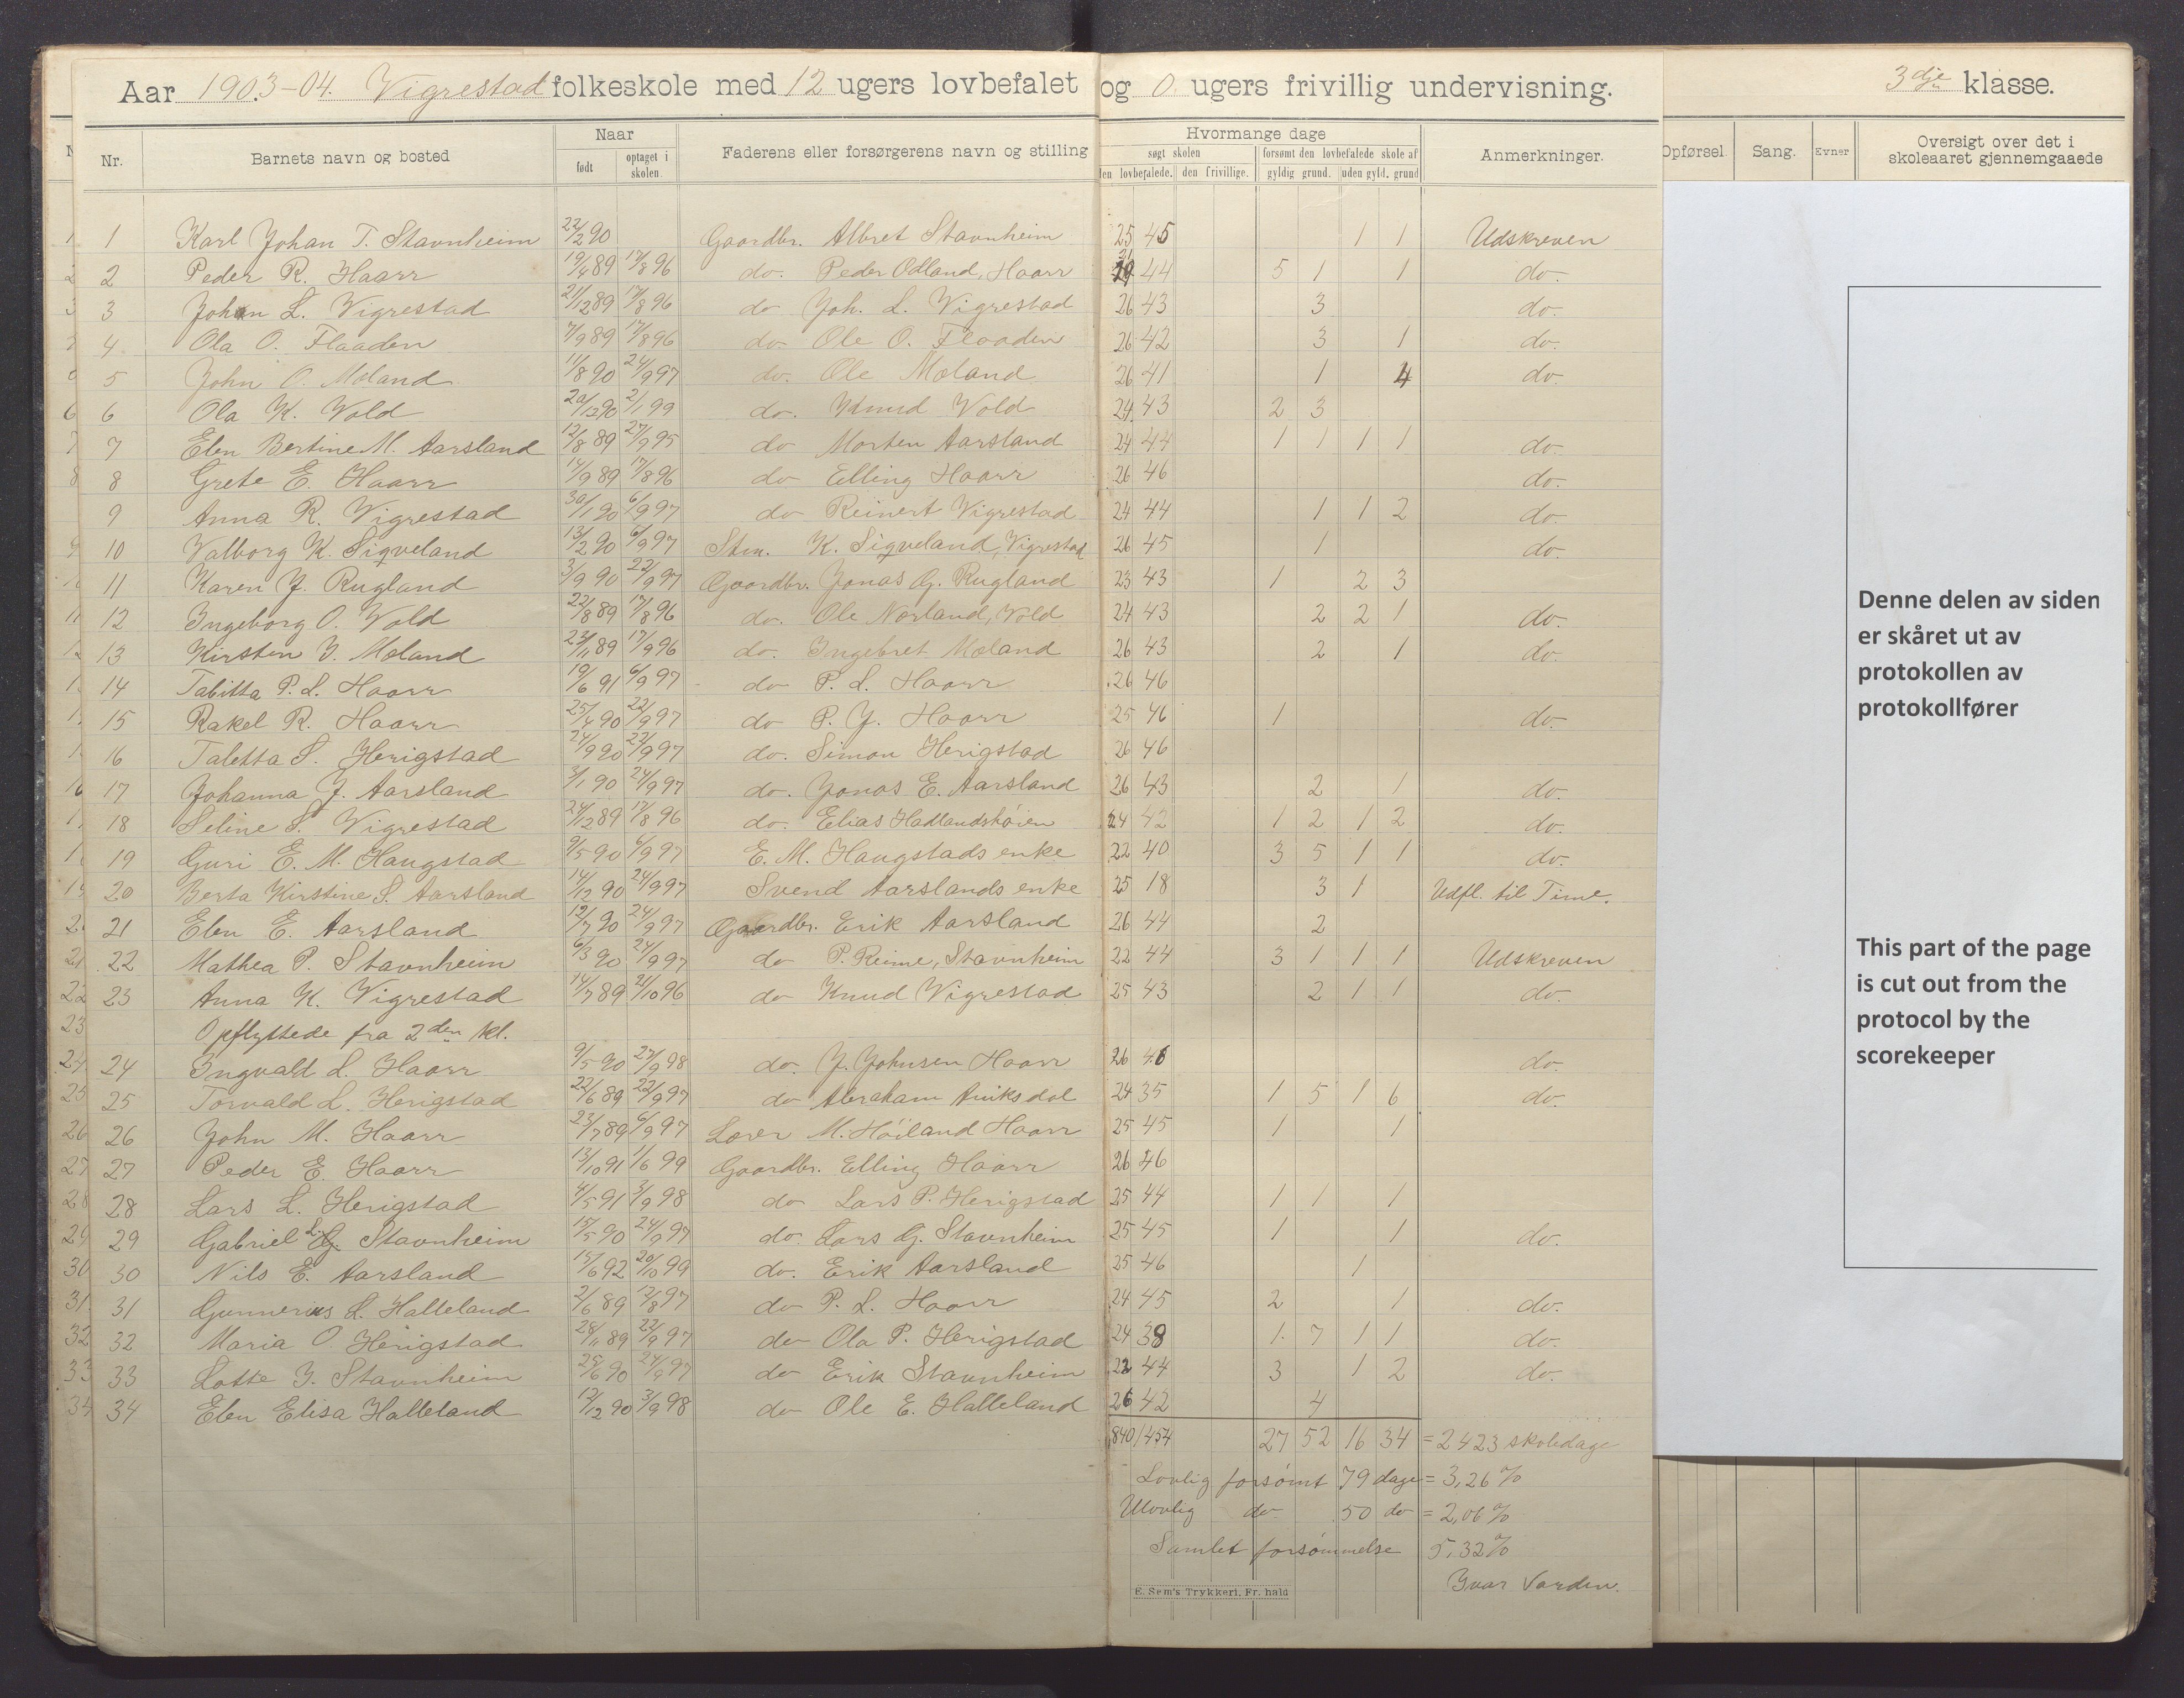 Aar 1903-04. Vigrestad folkeskole med 12 ugers lovbefalet og 0 ugers frivillig undervisning. 3dje klasse.
Nr. Barnets navn og bosted Naar Faderens eller forsørgerens navn og stilling Hvormange dage Anmerkninger. Opførsel. Sang. Evner Oversigt over det i skoleaaret gjennemgaaede
født optaget i skolen. søgt skolen forsømt den lovbefalede skole af
den lovbefalede. den frivillige. gyldig grund. uden gyld. grund
1 Karl Johan T. Stavnheim 22/2 90 Gaardbr. Albret Stavnheim 25 45 1 1 Udskreven
2 Peder R. Haarr 19/4 89 17/8 96 do. Peder Odland, Haarr 44 5 1 1 do.
3 Johan L. Vigrestad 21/12 89 17/8 96 do Joh. L. Vigrestad 26 43 3 do.
4 Ola O. Flaaden 7/9 89 17/8 96 do Ole O. Flaaden 26 42 3 1 do.
5 John O. Moland 11/8 90 24/9 97 do. Ole Moland 26 41 1 4 do.
6 Ola K. Vold 20/12 90 2/1 99 do. Knud Vold 24 43 2 3
7 Elen Bertine M. Aarsland 12/8 89 27/9 95 do Morten Aarsland 24 44 1 1 1 1 do.
8 Grete E. Haarr 14/9 89 17/8 96 do Elling Haarr 26 46 do.
9 Anna R. Vigrestad 30/1 90 6/9 97 do Reinert Vigrestad 24 44 1 1 2 do.
10 Valborg K. Sigveland 13/2 90 6/9 97 Stm. K. Sigveland, Vigrestad 26 45 1 do.
11 Karen J. Rugland 3/9 90 22/9 97 Gaardbr. Jonas G. Rugland 23 43 1 2 3
12 Ingeborg O. Vold 22/8 89 17/8 96 do. Ole Norland, Vold 24 43 2 2 1 do.
13 Kirsten I. Moland 23/11 89 17/9 96 do. Ingebret Moland 26 43 2 1 do.
14 Tabitta P. L. Haarr 19/6 91 6/9 97 do P. L. Haarr 26 46
15 Rakel R. Haarr 25/4 90 22/9 97 do P. J. Haarr 25 46 1 do.
16 Taletta S. Herigstad 24/9 90 22/9 97 do. Simon Herigstad 26 46
17 Johanna J. Aarsland 3/1 90 24/9 97 do. Jonas E. Aarsland 26 43 2 1 do.
18 Seline S. Vigrestad 24/12 89 17/8 96 do. Elias Hadlandshöien 24 42 1 2 1 2 do.
19 Guri E. M. Haugstad 9/5 90 6/9 97 E. M. Haugstads enke 22 40 3 5 1 1 do.
20 Berta Kirstine S. Aarsland 14/12 90 24/9 97 Svend Aarslands enke 25 18 3 1 Udfl. til Time.
21 Elen E. Aarsland 12/7 90 24/9 97 Gaardbr. Erik Aarsland 26 44 2
22 Mathea P. Stavnheim 6/3 90 24/9 97 do P. Reime, Stavnheim 22 44 3 1 1 1 Udskreven
23 Anna K. Vigrestad 14/7 89 21/10 96 do Knud Vigrestad 25 43 2 1 1 do.
Opflyttede fra 2den kl.
24 Ingvald L. Haarr 9/5 90 27/9 98 do. J. Johnsen Haarr 26 46 do.
25 Torvald L. Herigstad 22/6 89 22/9 97 do Abraham Aniksdal 24 35 1 5 1 6 do.
26 John M. Haarr 23/7 89 6/9 97 Lærer M. Höiland Haarr 25 45 1 1
27 Peder E. Haarr 13/10 91 1/6 99 Gaardbr. Elling Haarr 26 46
28 Lars L. Herigstad 4/5 91 3/9 98 do Lars P. Herigstad 25 44 1 1 1
29 Gabriel L. G. Stavnheim 15/5 90 24/9 97 do. Lars G. Stavnheim 25 45 1 1 do.
30 Nils E. Aarsland 15/6 92 20/10 99 do. Erik Aarsland 25 46 1
31 Gunnerius L. Halleland 2/6 89 12/8 97 do P. L. Haarr 24 45 2 1 do.
32 Maria O. Herigstad 28/11 89 22/9 97 do Ola P. Herigstad 24 38 1 7 1 1 do.
33 Lotte I. Stavnheim 25/6 90 24/9 97 do Erik Stavnheim 22 44 3 1 2 do.
34 Elen Elisa Halleland 12/12 90 3/9 98 do Ole E. Halleland 26 42 4
840 1454 27 52 16 34 = 2423 skoledage
Lovlig forsömt 79 dage = 3,26 %
Ulovlig do 50 do = 2,06 %
Samlet forsömmelse 5,32 %
Ivar Varden.
E. Sem's Trykkeri, Fr. hald
Denne delen av siden
er skåret ut av
protokollen av
protokollfører
This part of the page
is cut out from the
protocol by the
scorekeeper